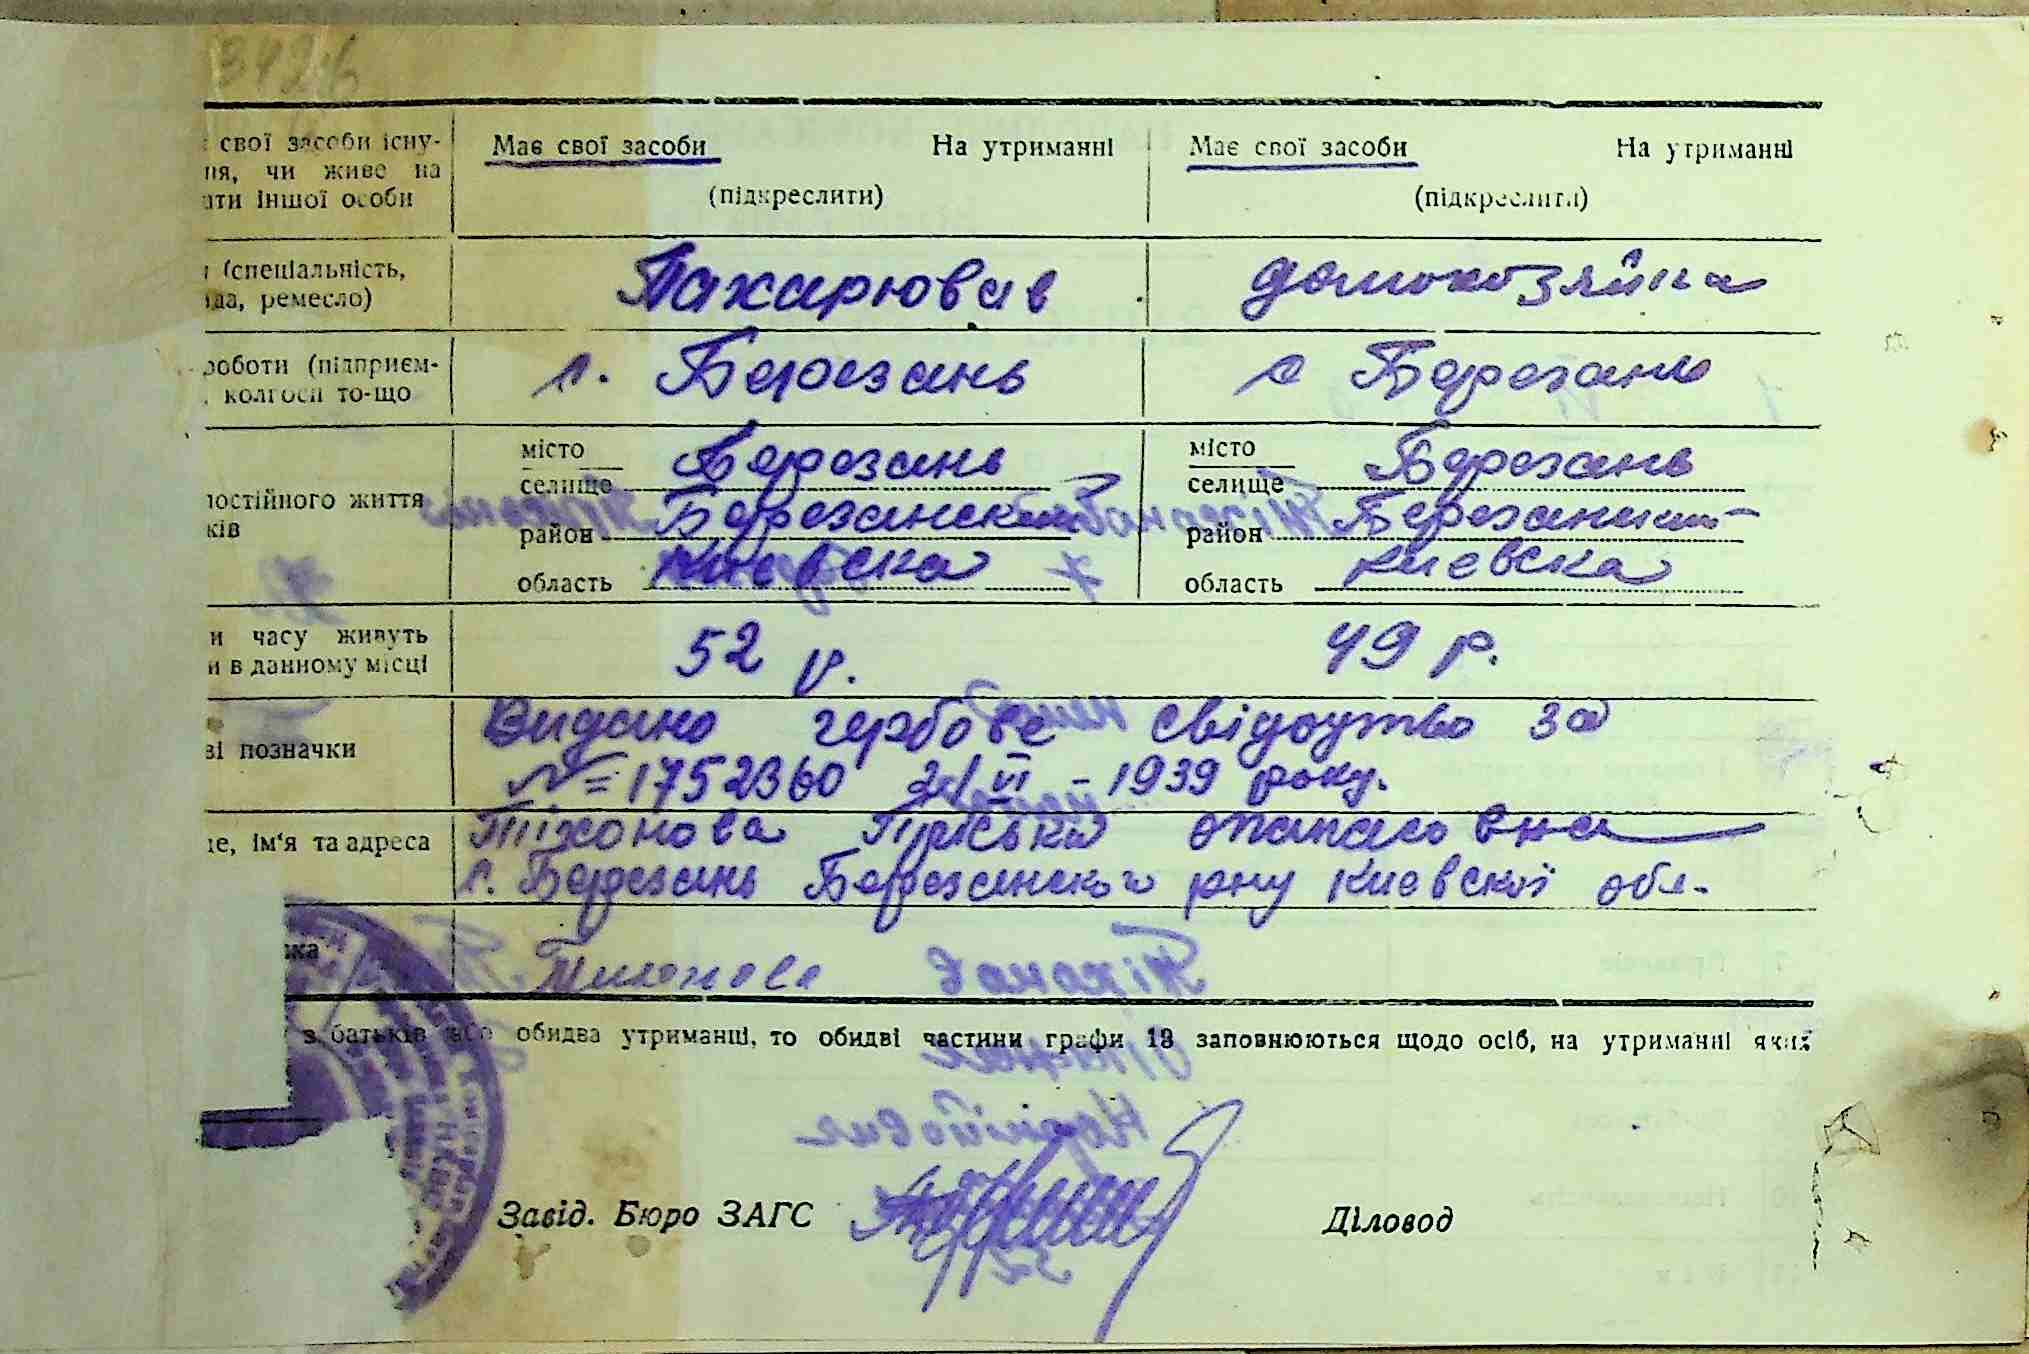 342
свої засоби існу-
ня, чи живе на
ати іншої особи
Має свої засоби На утриманні
(підкреслити)
Має свої засоби На утриманні
(підкреслити)
(спеціальність,
да, ремесло)
Пахарював
домохозяйка
роботи (підприєм-
колгосп то-що
с. Березань
с Березань
постійного життя
ків
місто
селище
Березань
район Березанский
область Киевска
місто
селище
Березань
район
область Киевска
и часу живуть
и в данному місці
52 р.
49 р.
ві позначки
Видано гербове свідоцтво за
№ 1752360 VI - 1939 року.
це, ім'я та адреса
Тіхонова опанасовна
с. Березань Березанского рну Киевской обл.
ка
Тихонова
з батьків або обидва утриманці, то обидві частини графи 13 заповнюються щодо осіб, на утриманні яких
Завід. Бюро ЗАГС
Діловод